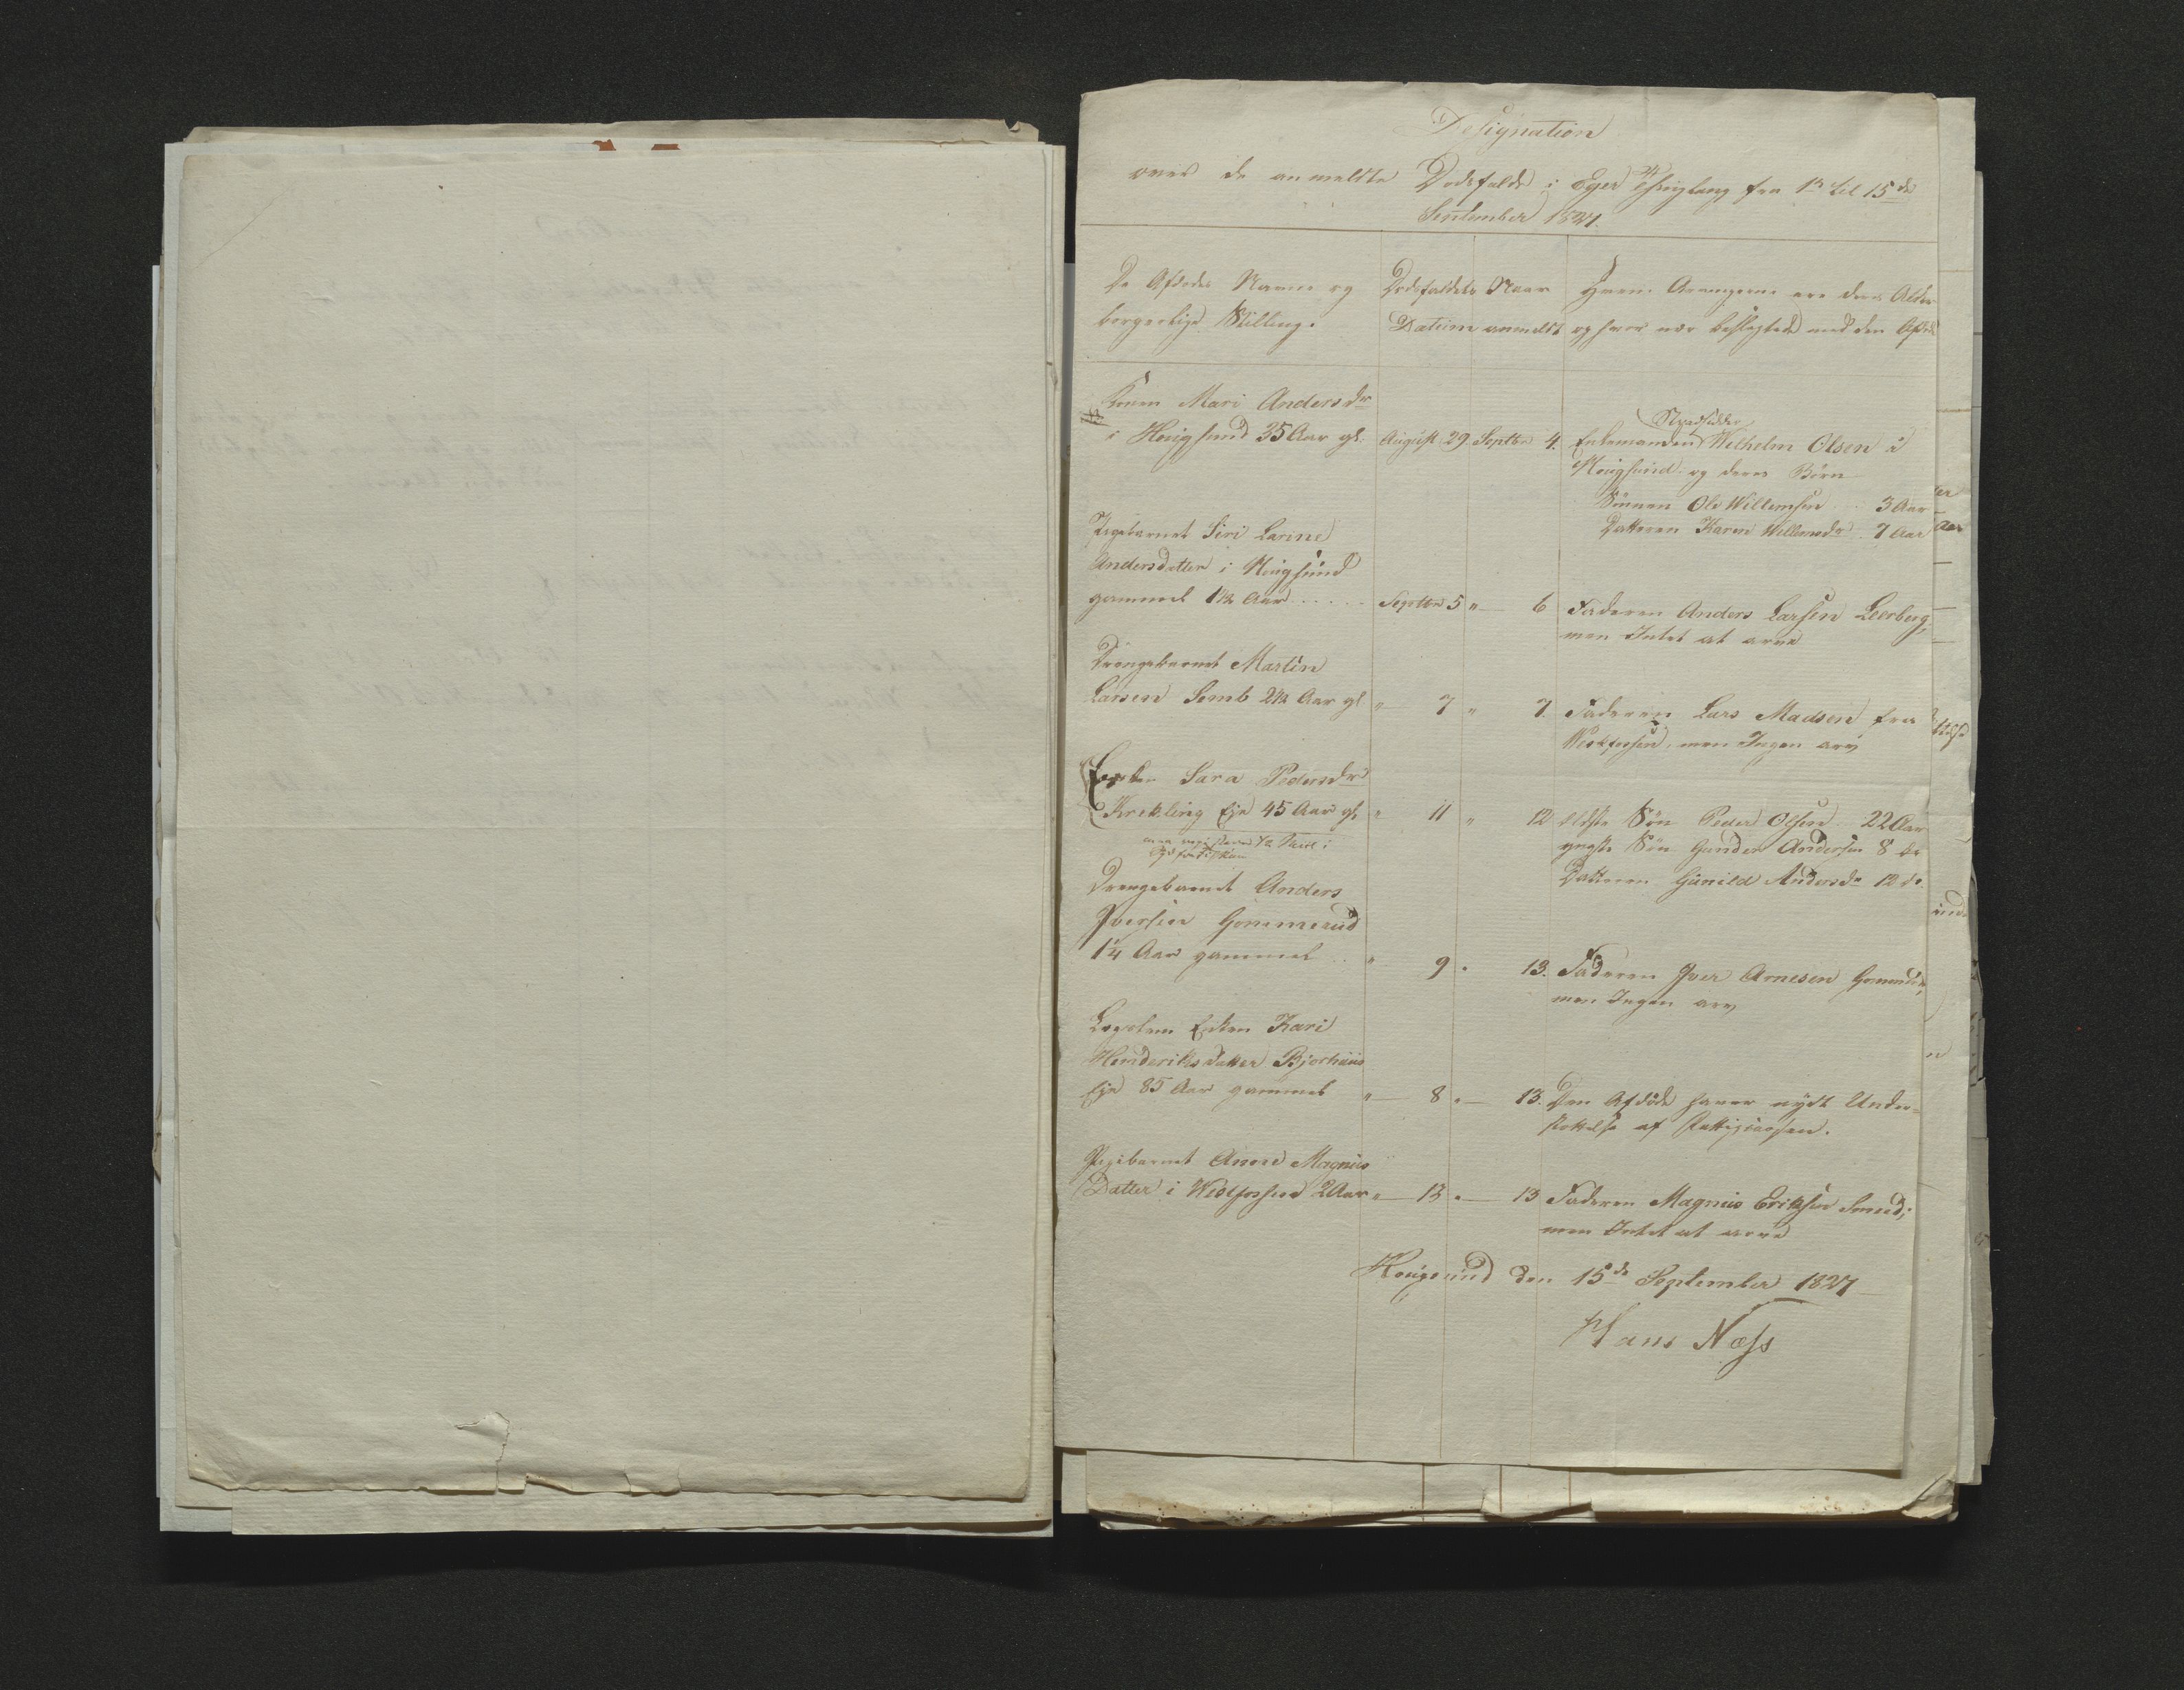 Designation
over de anmeldte Dødsfald i Eger fra 1te til 15de
September 1827.
De Afdødes Navne og
borgerlige Stilling.
Dødsfaldets
Datum
Naar
anmeldt
Hvem Arvingerne ere deres Alder
og hvor nær beslægtede med den Afdøde
Konen Mari Andersdr
i Hougsund 35 Aar gl. August 29 Septbr 4.
Strandsidder
Enkemanden Wilhelm Olsen i
Hougsund og deres Børn
Sønnen Ole Willemsen 3 Aar
Datteren Karen Willemsdr 7 Aar
Pigebarnet Siri Larine
Andersdatter i Hougsund
gammel 1 1/2 Aar Septbr 5 " 6 Faderen Anders Larsen Leerberg,
men Intet at arve
Drengebarnet Martin
Larsen Semb 2 1/2 Aar gl " 7 " 7. Faderen Lars Madsen fra
Westfossen, men Ingen arv
Enken Sara Pedersdr
Krekling Eje 45 Aar gl " 11 " 12 ældste Søn Peder Olsen 22 Aar
yngste Søn Gunder Andersen 8 do
Datteren Gunild Andersdr 12 do
Drengebarnet Anders
Iversen Gommerud
1 1/4 Aar gammel " 9 " 13. Faderen Iver Arnesen Gommerud,
men Ingen arv
Lægdslem Enken Kari
Henderiksdatter Bjørhuus
Eje 85 Aar gammel " 8 " 13. Den Afdøde haver nydt Under-
støttelse af Fattigcassen.
Pigebarnet Anne Magnus
Datter i Westfossen 2 Aar " 13 " 13 Faderen Magnus Eriksen Smed;
men Intet at arve
Hougsund den 15de September 1827
Hans Næss